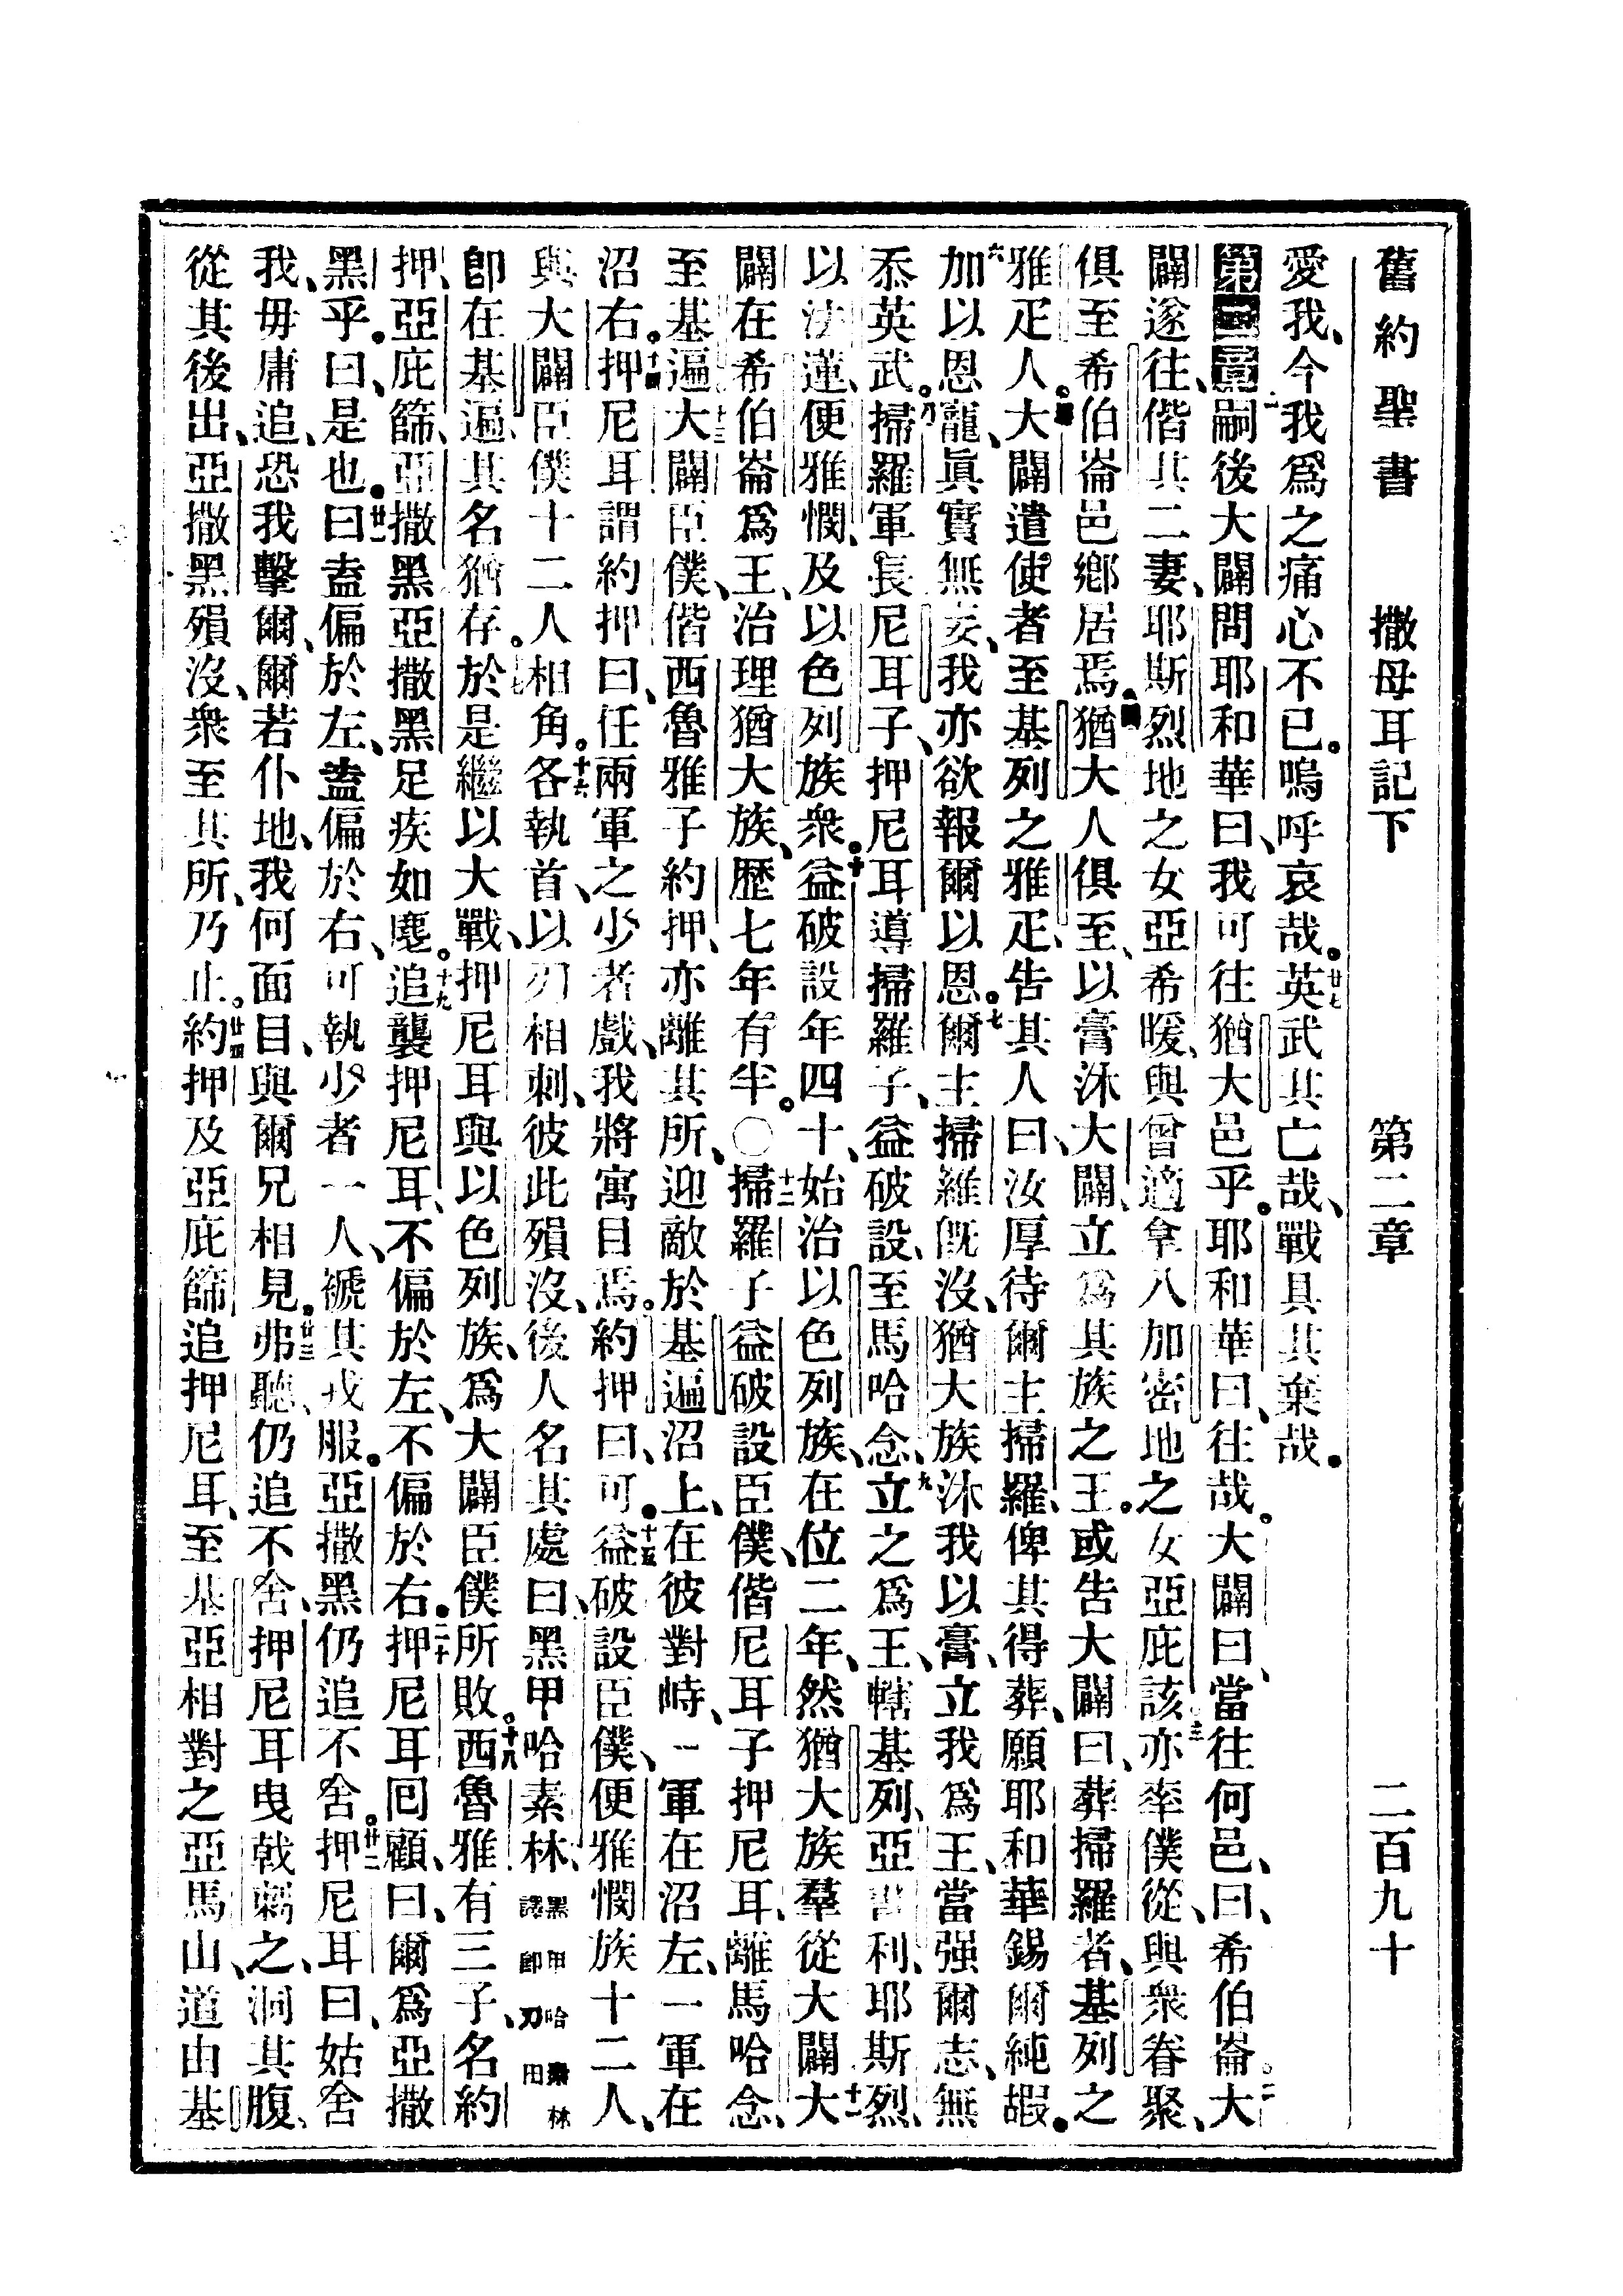 舊約聖書 撒母耳記下 第二章 二百九十
愛我、今我爲之痛心不已。嗚呼哀哉。廿七英武其亡哉、戰具其棄哉。
第二章一嗣後大闢問耶和華曰、我可往猶大邑乎。耶和華曰、往哉。大闢曰、當往何邑、曰、希伯崙。二大
闢遂往、偕其二妻、耶斯烈地之女亞希暖、與曾適拿八加密地之女亞庇該、三亦率僕從、與衆眷聚、
俱至希伯崙邑鄕居焉。四猶大人俱至、以膏沐大闢、立爲其族之王。或告大闢曰、葬掃羅者、基列之
雅疋人。五大闢遣使者至基列之雅疋、告其人曰、汝厚待爾主掃羅、俾其得葬、願耶和華錫爾純嘏。
六加以恩寵、眞實無妄、我亦欲報爾以恩。七爾主掃羅旣沒、猶大族沐我以膏、立我爲王、當强爾志、無
忝英武。八掃羅軍長尼耳子、押尼耳導掃羅子、益破設、至馬哈念、九立之爲王、轄基列、亞書利、耶斯烈、
以法蓮、便雅憫、及以色列族衆。十益破設年四十、始治以色列族、在位二年、然猶大族羣從大闢、十一大
闢在希伯崙爲王、治理猶大族、歷七年有半。〇十二掃羅子益破設臣僕、偕尼耳子押尼耳、離馬哈念、
至基遍、十三大闢臣僕、偕西魯雅子約押、亦離其所、迎敵於基遍沼上、在彼對峙、一軍在沼左、一軍在
沼右。十四押尼耳謂約押曰、任兩軍之少者戲、我將寓目焉。約押曰、可。十五益破設臣僕、便雅憫族十二人、
與大闢臣僕十二人相角。十六各執首、以刃相刺、彼此殞沒、後人名其處曰、黑甲哈素林、黑甲哈素林譯卽刀田
卽在基遍、其名猶存。十七於是繼以大戰、押尼耳與以色列族、爲大闢臣僕所敗。十八西魯雅有三子、名約
押、亞庇篩、亞撒黑、亞撒黑足疾如麀。十九追襲押尼耳、不偏於左、不偏於右。二十押尼耳回顧、曰、爾爲亞撒
黑乎。曰、是也。廿一曰盍偏於左、盍偏於右、可執少者一人、褫其戎服。亞撒黑仍追不舍。廿二押尼耳曰、姑舍
我、毋庸追、恐我擊爾、爾若仆地、我何面目、與爾兄相見。廿三弗聽、仍追不舍、押尼耳曳戟刺之、洞其腹、
從其後出、亞撒黑殞沒、衆至其所、乃止。廿四約押及亞庇篩追押尼耳、至基亞相對之亞馬山、道由基